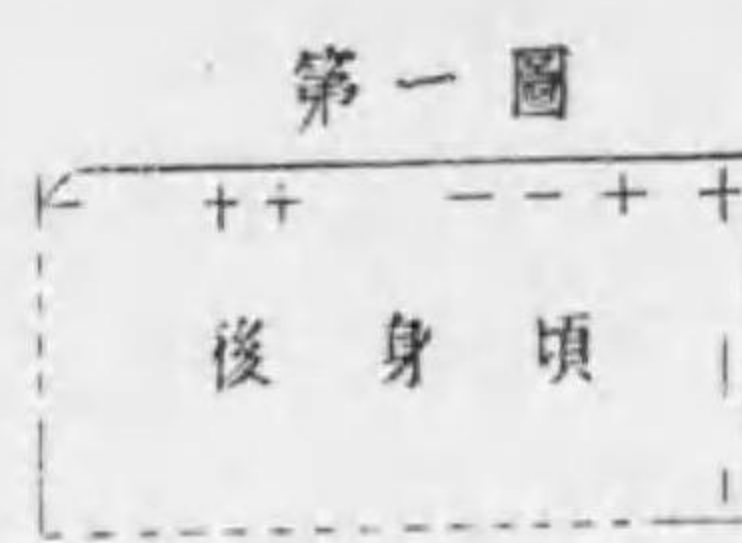 第一圖
後身頃